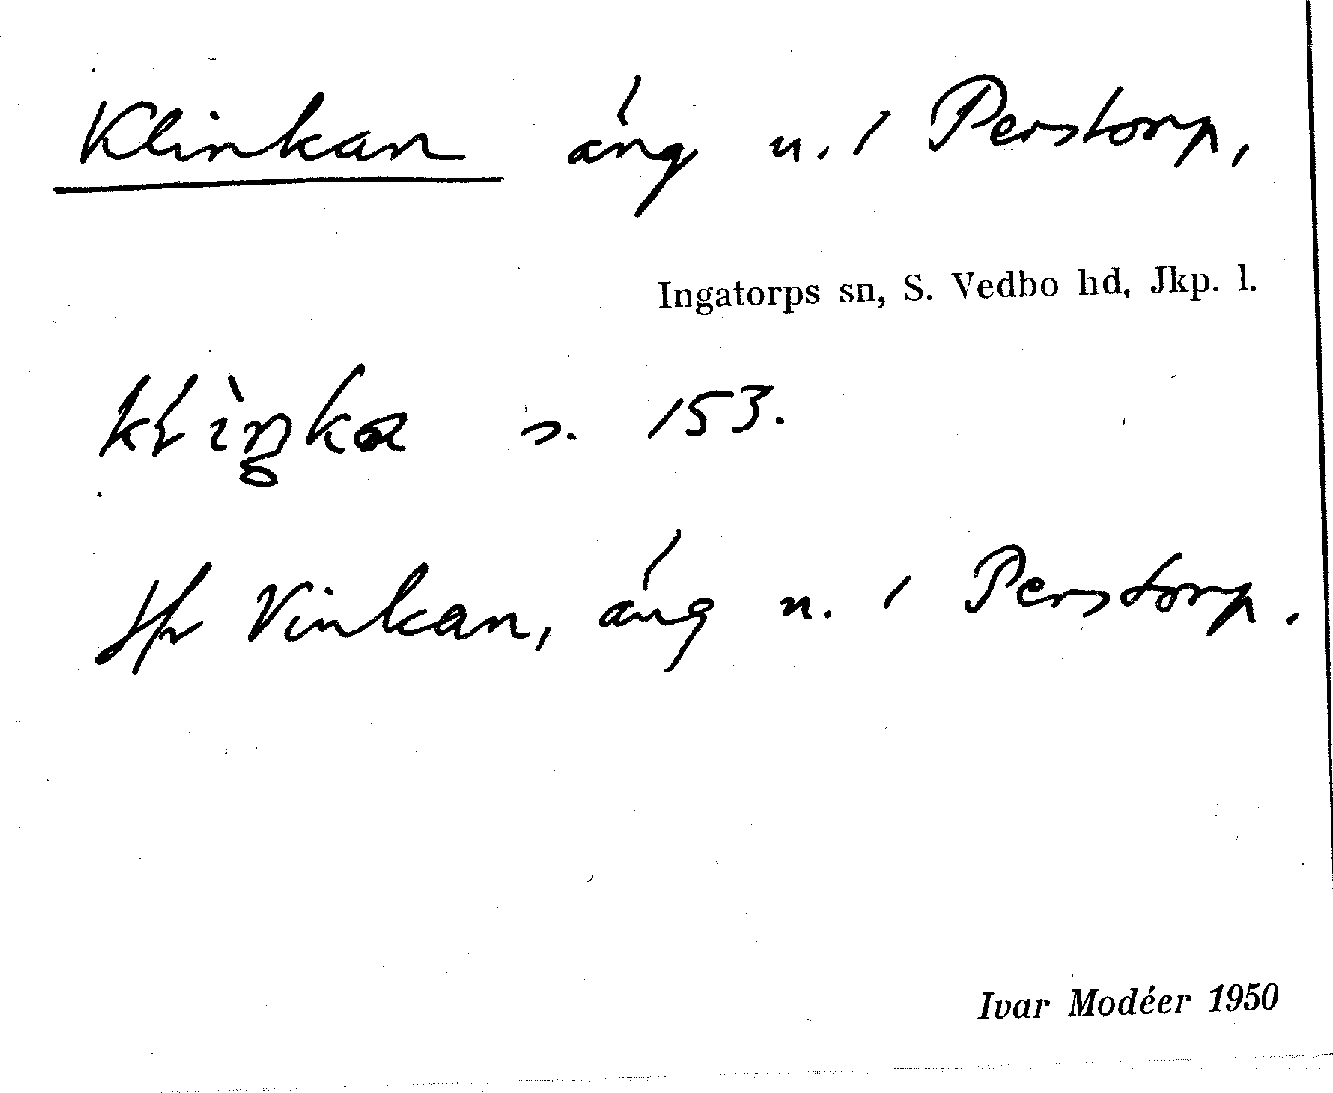 Klinkan äng n. / Perstorp,
Ingatorps sn, S. Vedbo hd, Jkp. l.
s. 153.
Jfr Vinkan, äng n. / Perstorp.
Ivar Modéer 1950